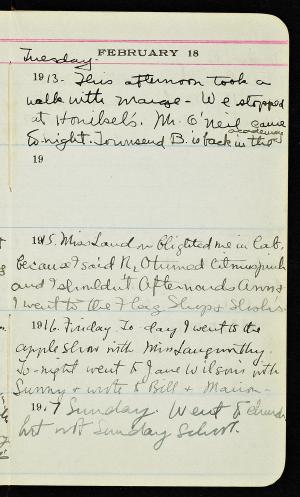 FEBRUARY 18
Tuesday.
1913 - This afternoon took a
walk with Marge - We stopped
at Mr. O'Neil came
academy
to-night. Townsend B. is back in the
19
1915. Miss Land in lab.
because I said H2O turned litmus pink
and I shouldn't Afterwards Anna &
I went to the Flag Shop &
1916. Friday. To-day I went to the
apple show with Miss Langworthy.
To-night went to Jane Wilson's with
Sunny & wrote to Bill & Marion -
1917 Sunday. Went to church
but not Sunday School.